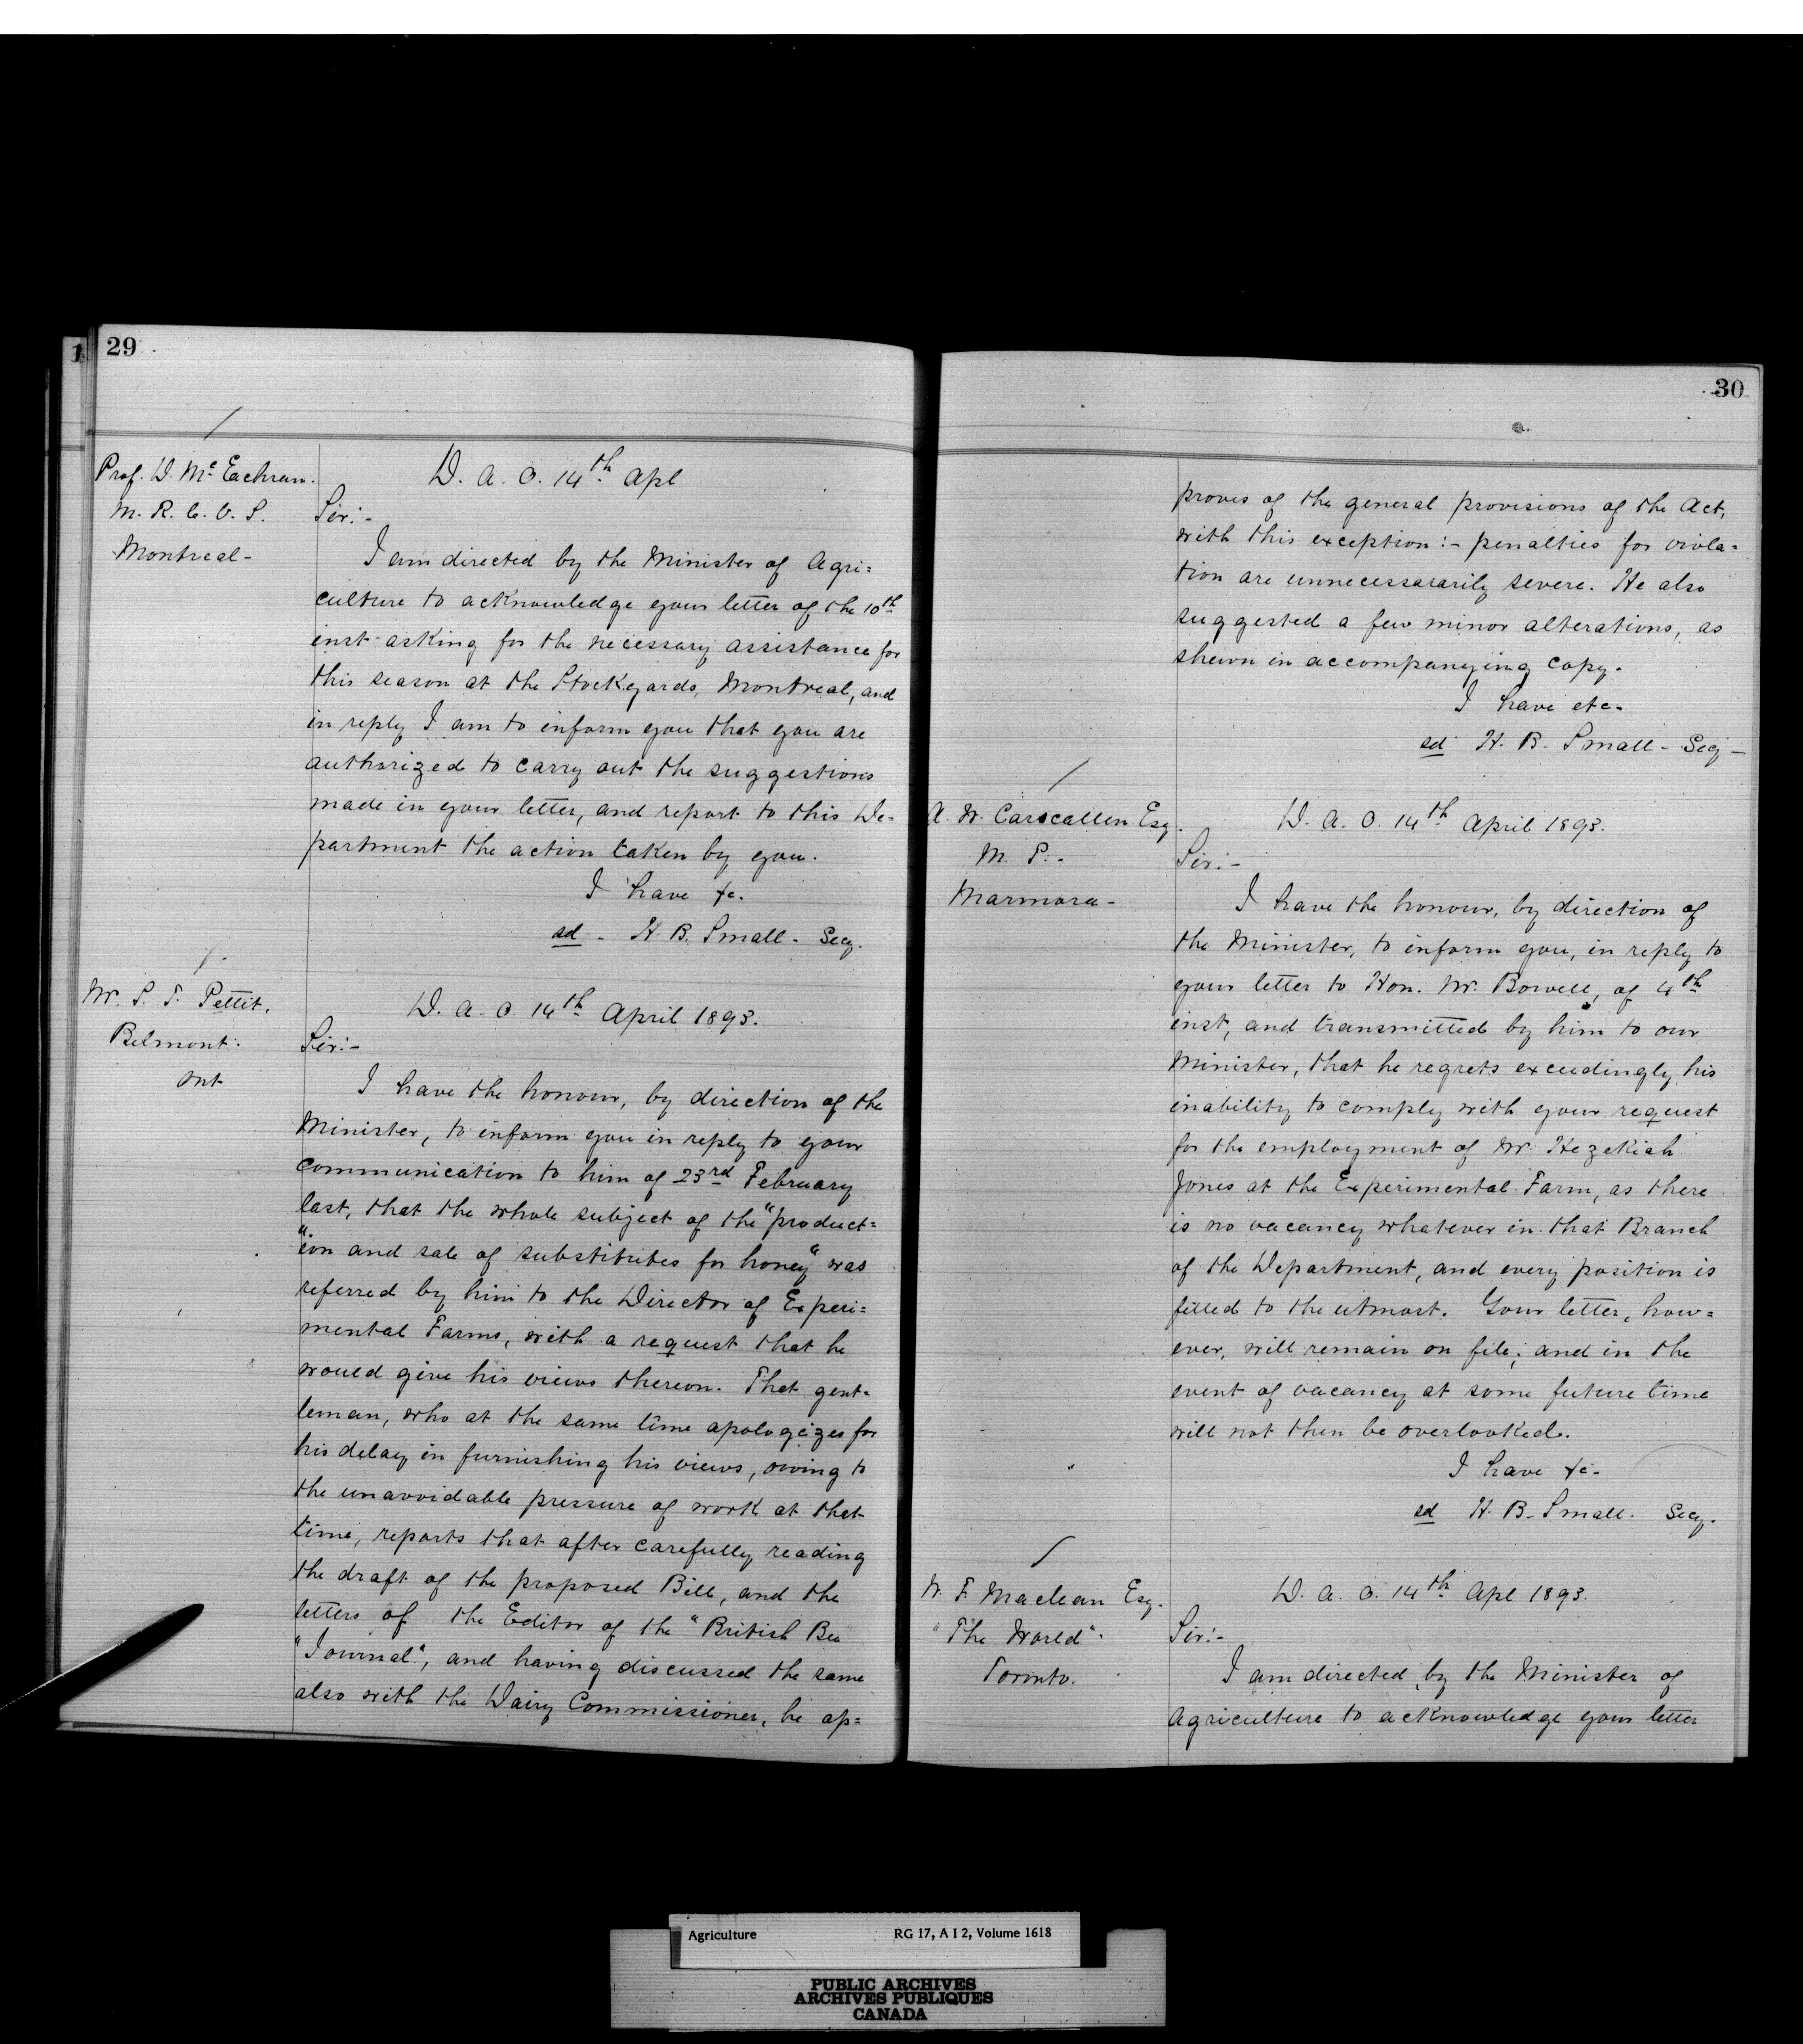 1
29
Prof. D. McEachran.
M. R. C. V. S.
Montreal-
D. A. O. 14th Apl
Sir:-
I am directed by the Minister of Agri=
culture to acknowledge your letter of the 10th
inst asking for the necessary assistance for
this season at the Stockyards, Montreal, and
in reply I am to inform you that you are
authorized to carry out the suggestions
made in your letter, and report to this De-
partment the action taken by you.
I have &c.
sd - H. B. Small - Secy.
Mr. S. T. Pettit.
Belmont.
Ont
D. A. O. 14th April 1893.
Sir:-
I have the honour, by direction of the
Minister, to inform you in reply to your
communication to him of 23rd February
last, that the whole subject of the "product=
"ion and sale of substitutes for honey" was
referred by him to the Director of Experi=
mental Farms, with a request that he
would give his views thereon. That gent-
leman, who at the same time apologizes for
his delay in furnishing his views, owing to
the unavoidable pressure of work at that
time, reports that after carefully reading
the draft of the proposed Bill, and the
letters of the Editor of the "British Bee
"Journal", and having discussed the same
also with the Dairy Commissioner, he ap=
30
proves of the general provisions of the Act,
with this exception:- penalties for viola=
tion are unnecessararily severe. He also
suggested a few minor alterations, as
shewn in accompanying copy.
I have etc.
sd H. B. Small - Secy -
A. W. Carscallen Esq.
M. P. -
Marmora -
D. A. O. 14th April 1893.
Sir:-
I have the honour, by direction of
the Minister, to inform you, in reply to
your letter to Hon. Mr. Bowell, of 4th
inst, and transmitted by him to our
Minister, that he regrets exceedingly his
inability to comply with your request
for the employment of Mr. Hezekiah
Jones at the Experimental Farm, as there
is no vacancy whatever in that Branch
of the Department, and every position is
filled to the utmost. Your letter, how=
ever, will remain on file; and in the
event of vacancy at some future time
will not then be overlooked.
I have &c-
sd H. B. Small. Secy.
W. F. Maclean Esq.
"The World".
Toronto.
D. A. O. 14th Apl 1893.
Sir:-
I am directed by the Minister of
Agriculture to acknowledge your letter
Agriculture RG 17, A I 2, Volume 1618
PUBLIC ARCHIVES
ARCHIVES PUBLIQUES
CANADA